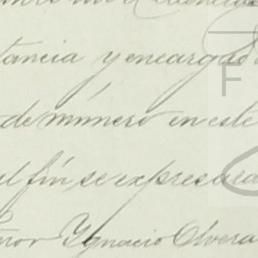 tancia y encargado
de minero en este
al fin se expresara
Ygnacio Olvera
F